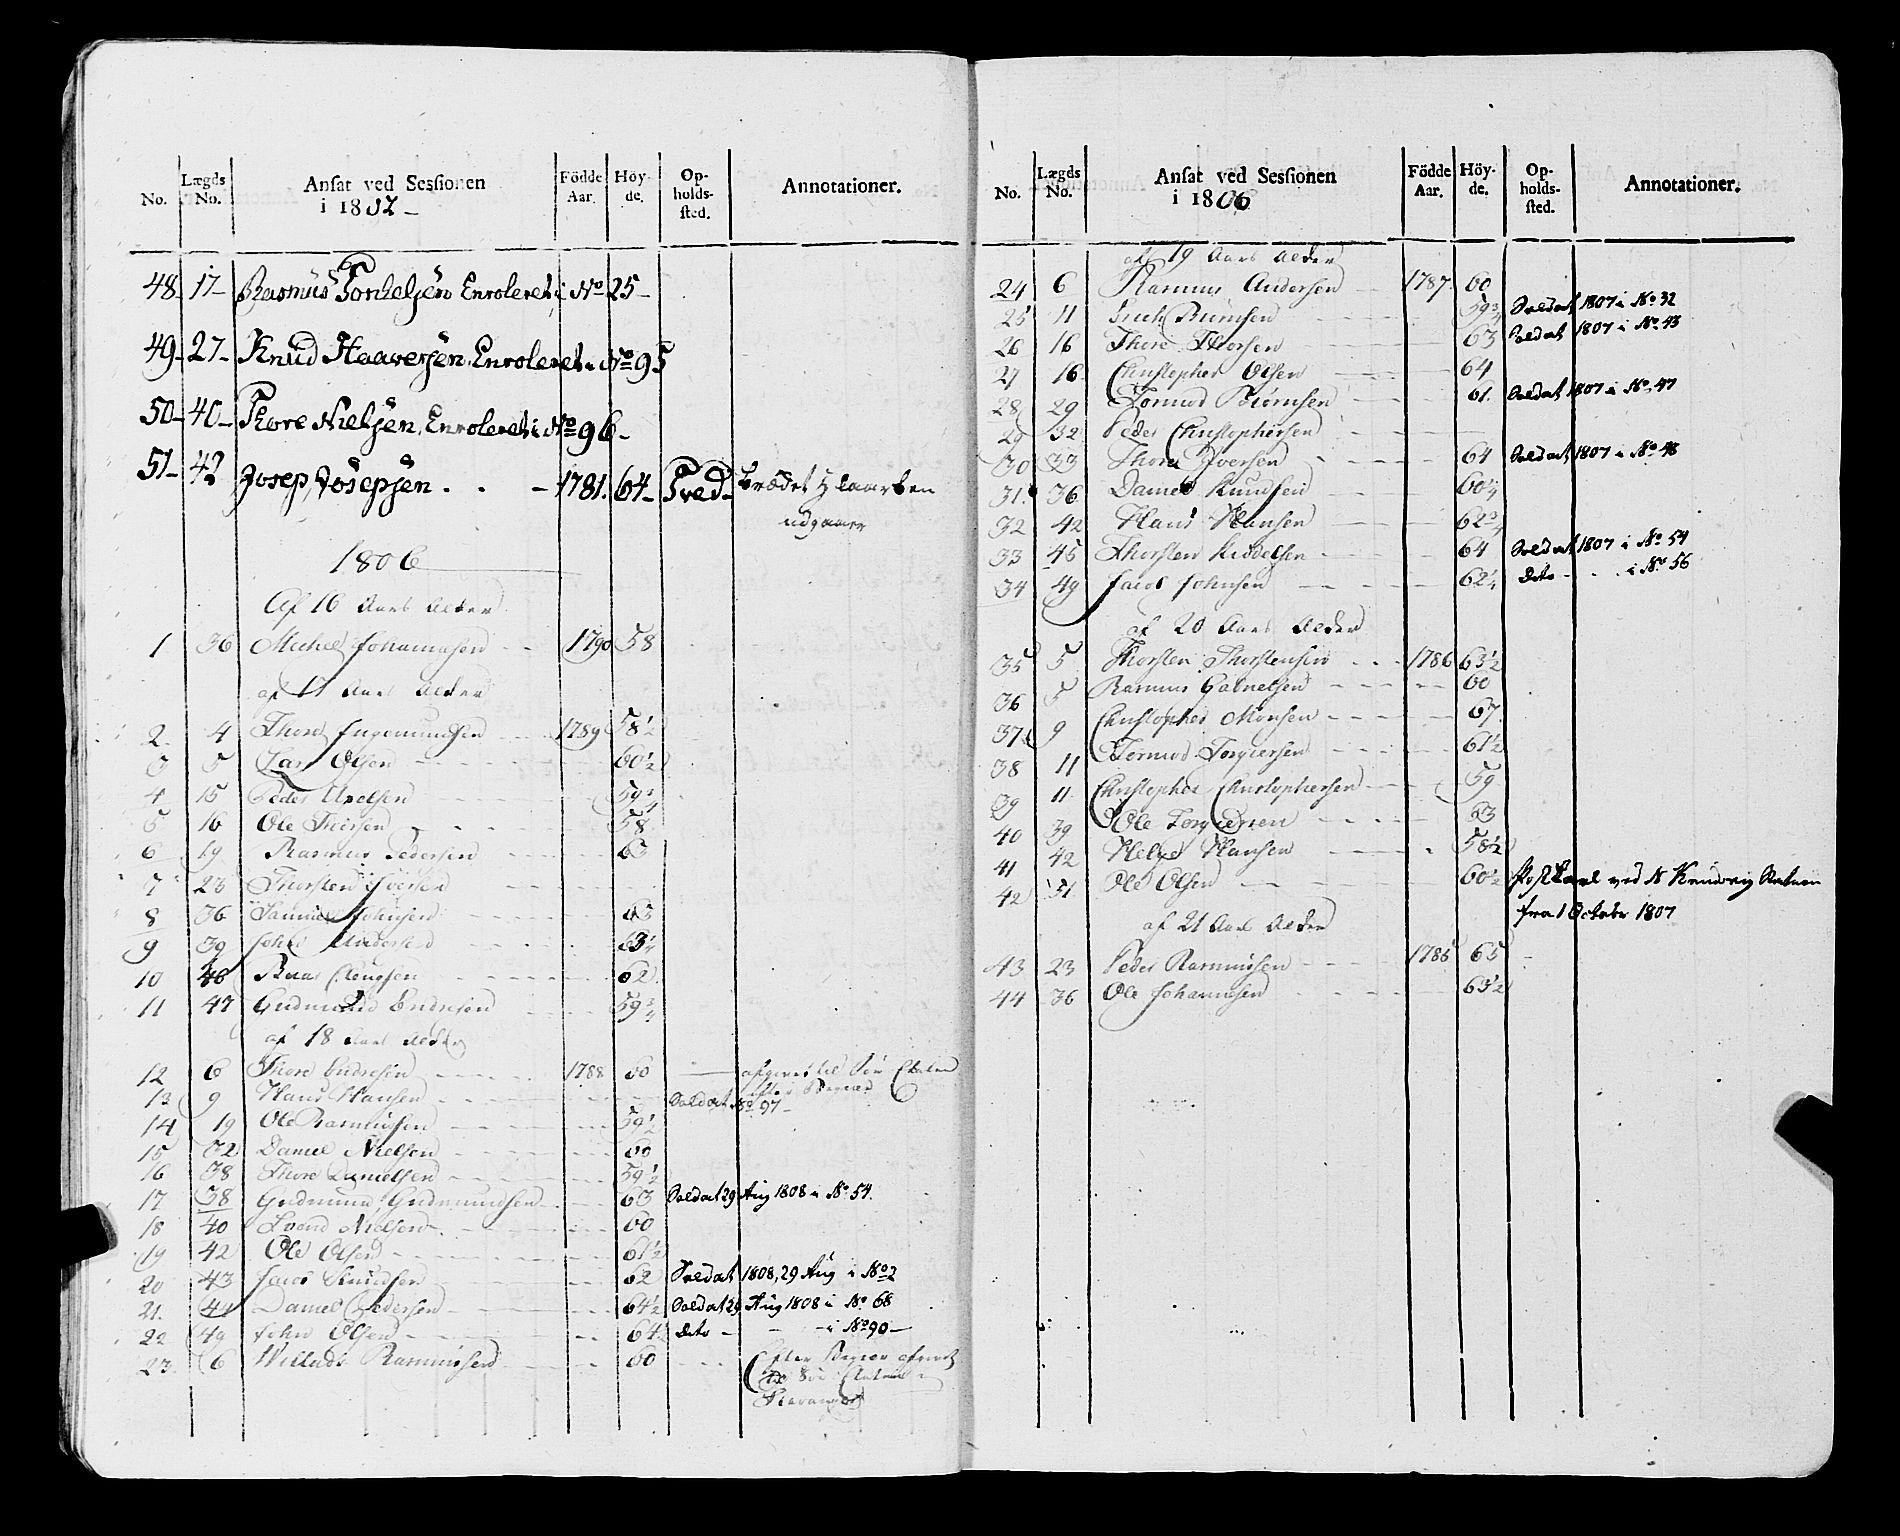 No. Lægds No. Ansat ved Sessionen i 1802 - Födde Aar. Höy-de. Op-holds-sted. Annotationer.
48 17 Rasmus Torkelsen Enroleret i No 25
49 27 Knud Haaversen Enroleret i No 95
50 40 Thore Nielsen, Enroleret i No 96
51 42 Josep Josepsen 1781. 64 Tred
udgaaer
1806
Af 16 Aars Alder
1 36 Michel Johannesen 1790 58
af 17 Aars Alder
2 4 Thore Ingemundsen 1789 58½
3 5 Lars Olsen 60½
4 15 Peder Axelsen 59¾
5 16 Ole Iversen 58
6 19 Rasmus Pedersen 63
7 23 Thorsten Iversen
8 36 Johnsen 63
9 39 John Andersen 63¼
10 46 62
11 47 Gudmund Endresen 59¾
af 18 Aars Alder
12 6 Thore Endresen 1788 60 afgivet til Söe Etaten
13 9 Hans Hansen Soldat No 97 efter Begiær
14 19 Ole Rasmussen 59½
15 32 Daniel Nielsen 60
16 38 Thore Danielsen 59½
17 38 Gudmund Gudmundsen 63 Soldat 29 Aug 1808 i No 54.
18 40 Svend Nielsen 60
19 42 Ole Olsen 61½
20 43 Jacob Knudsen 62 Soldat 1808, 29 Aug i No 2
21. 44 Daniel Pedersen 64½ Soldat 29 Aug 1808 i No 68
22 49 John Olsen 64 Dito - - i No 90
23 6 Willads Rasmussen 60 Efter Begiær afgivet
til Söe Etaten i
Stavanger
No. Lægds No. Ansat ved Sessionen i 1806 Födde Aar. Höy-de. Op-holds-sted. Annotationer.
af 19 Aars Alder
24 6 Rasmus Andersen 1787 60
25 11 59¾ Soldat 1807 i No 32
26 16 Thore Thorsen 63 Soldat 1807 i No 43
27 16 Christopher Olsen 64
28 29 Tormod Biörnsen 61 Soldat 1807 i No 47
29 32 Peder Christophersen
30 33 Thore Iversen 64 Soldat 1807 i No 48
31 36 Daniel Knudsen 60¼
32 42 Hans Hansen 62¾
33 45 Thorsten Kiddelsen 64 Soldat 1807 i No 54
34 49 Jacob Johnsen 62¼ Dito - - i No 56
af 20 Aars Alder
35 5 Thorsten Thorstensen 1786 63½
36 5 Rasmus Gabrielsen 60
37 9 Christopher Monsen 67
38 11 Tormod Torgiersen 61½
39 11 Christopher Christophersen 59
40 39 Ole 63
41 42 Helge Hansen 58½
42 51 Ole Olsen 60½ Postkarl ved
fra 1 October 1807
af 21 Aars Alder
43 23 Peder Rasmussen 1785 65
44 36 Ole Johannesen 63½